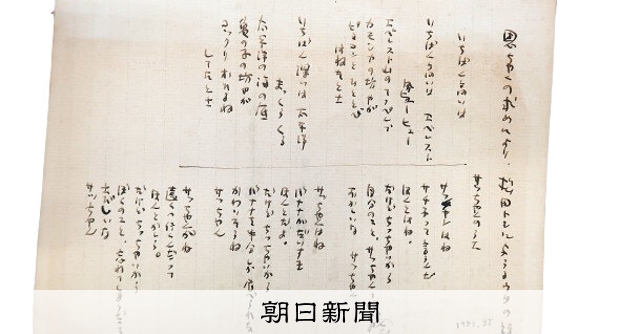 いちばん高いは
いちばん高いは エベレスト
エベレスト山のてっぺんで
カモシカの坊やが
ピョンとひととび
はねたとさ
いちばん深いは 太平洋
まっくらくら
太平洋の海の底
亀の子の坊やが
こっくり
してたとさ
サッちゃんのうた
サッちゃんはね
サチコっていうんだ
ほんとはね。
だけどちっちゃいから
おかしいな サッちゃん
サッちゃんはね
バナナがだいすき
ほんとだよ。
だけどちっちゃいから
バナナを半分しか食べられない
かわいそうね
サッちゃん
サッちゃんがね
遠くへいくんだって
ほんとかしら。
だけどちっちゃいから
ぼくのこと、忘れてしまうだろ
さびしいな
サッちゃん
朝日新聞